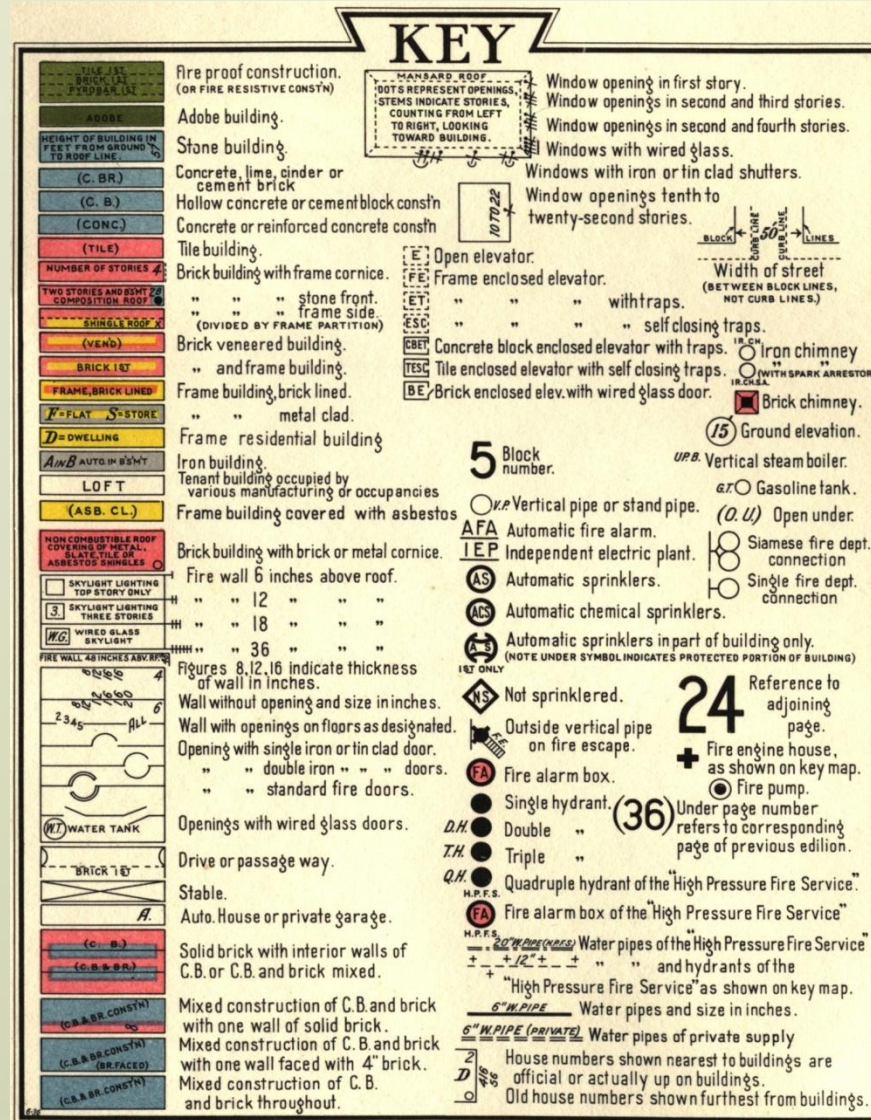 KEY
TILE 1ST
BRICK 1ST
PYROBAR 1ST
Fire proof construction.
(OR FIRE RESISTIVE CONST'N)
ADOBE
Adobe building.
HEIGHT OF BUILDING IN
FEET FROM GROUND
TO ROOF LINE.
Stone building.
(C. BR.)
Concrete, lime, cinder or
cement brick
(C. B.)
Hollow concrete or cement block const'n
(CONC.)
Concrete or reinforced concrete const'n
(TILE)
Tile building.
NUMBER OF STORIES 4
Brick building with frame cornice.
TWO STORIES AND BSMT 2B
COMPOSITION ROOF
„ „ „ stone front.
„ „ „ frame side.
SHINGLE ROOF X
(DIVIDED BY FRAME PARTITION)
(VEN'D)
Brick veneered building.
BRICK 1ST
„ and frame building.
FRAME, BRICK LINED
Frame building, brick lined.
F=FLAT S=STORE
„ „ metal clad.
D=DWELLING
Frame residential building
A IN B AUTO. IN B'SM'T
Iron building.
LOFT
Tenant building occupied by
various manufacturing or occupancies
(ASB. CL.)
Frame building covered with asbestos
NON COMBUSTIBLE ROOF
COVERING OF METAL,
SLATE, TILE OR
ASBESTOS SHINGLES
Brick building with brick or metal cornice.
SKYLIGHT LIGHTING
TOP STORY ONLY
Fire wall 6 inches above roof.
3. SKYLIGHT LIGHTING
THREE STORIES
„ „ 12 „ „ „
„ „ 18 „ „ „
W.G. WIRED GLASS
SKYLIGHT
„ „ 36 „ „ „
FIRE WALL 48 INCHES ABV. RF.
4
Figures 8,12,16 indicate thickness
of wall in inches.
6
Wall without opening and size in inches.
2345 ALL
Wall with openings on floors as designated.
Opening with single iron or tin clad door.
„ „ double iron „ „ „ doors.
„ „ standard fire doors.
W.T. WATER TANK
Openings with wired glass doors.
BRICK 1ST
Drive or passage way.
Stable.
A.
Auto. House or private garage.
(C. B.)
(C.B.& BR.)
Solid brick with interior walls of
C.B. or C.B. and brick mixed.
(C.B.& BR. CONST'N)
8
Mixed construction of C.B. and brick
with one wall of solid brick.
(C.B.& BR. CONST'N)
(BR. FACED)
Mixed construction of C.B. and brick
with one wall faced with 4" brick.
(C.B.& BR. CONST'N)
Mixed construction of C.B.
and brick throughout.
MANSARD ROOF
DOTS REPRESENT OPENINGS,
STEMS INDICATE STORIES,
COUNTING FROM LEFT
TO RIGHT, LOOKING
TOWARD BUILDING.
Window opening in first story.
Window openings in second and third stories.
Window openings in second and fourth stories.
Windows with wired glass.
Windows with iron or tin clad shutters.
10 TO 22
Window openings tenth to
twenty-second stories.
BLOCK CURB LINE 50' CURB LINE LINES
Width of street
(BETWEEN BLOCK LINES,
NOT CURB LINES.)
E Open elevator.
FE Frame enclosed elevator.
ET „ „ „ with traps.
ESC „ „ „ self closing traps.
CBET Concrete block enclosed elevator with traps.
TESC Tile enclosed elevator with self closing traps.
BE Brick enclosed elev. with wired glass door.
IR.CH.
Iron chimney
„ „
(WITH SPARK ARRESTOR
IR.CH.S.A.
Brick chimney.
15 Ground elevation.
U.P.B. Vertical steam boiler.
G.T. Gasoline tank.
(O. U.) Open under.
Siamese fire dept.
connection
Single fire dept.
connection
5 Block
number.
V.P. Vertical pipe or stand pipe.
AFA Automatic fire alarm.
IEP Independent electric plant.
AS Automatic sprinklers.
ACS Automatic chemical sprinklers.
AS Automatic sprinklers in part of building only.
(NOTE UNDER SYMBOL INDICATES PROTECTED PORTION OF BUILDING)
1ST ONLY
NS Not sprinklered.
F.E.
Outside vertical pipe
on fire escape.
FA Fire alarm box.
Single hydrant.
D.H. Double „
T.H. Triple „
Q.H. Quadruple hydrant of the "High Pressure Fire Service."
H.P.F.S.
FA Fire alarm box of the "High Pressure Fire Service"
H.P.F.S.
24 Reference to
adjoining
page.
Fire engine house,
as shown on key map.
Fire pump.
(36) Under page number
refers to corresponding
page of previous edilion.
20" W.PIPE (H.P.F.S.) Water pipes of the "High Pressure Fire Service"
12" „ „ and hydrants of the
"High Pressure Fire Service" as shown on key map.
6" W.PIPE Water pipes and size in inches.
6" W.PIPE (PRIVATE) Water pipes of private supply
2
D
416
56
House numbers shown nearest to buildings are
official or actually up on buildings.
Old house numbers shown furthest from buildings.